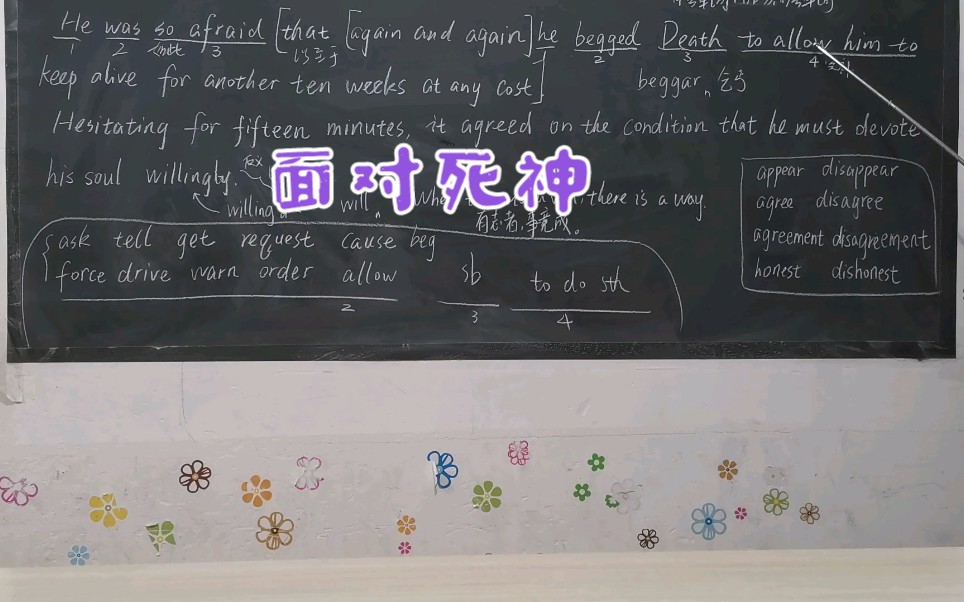 He was so afraid [that [again and again] he begged Death to allow him to
1 2 如此 3 以至于 1 2 3 4
keep alive for another ten weeks at any cost]
beggar n 乞丐
Hesitating for fifteen minutes, it agreed on the condition that he must devote
his soul willingly.
反义
willing
will n
there is a way.
有志者,事竟成。
面对死神
ask tell get request cause beg
force drive warn order allow sb to do sth
2 3 4
appear disappear
agree disagree
agreement disagreement
honest dishonest